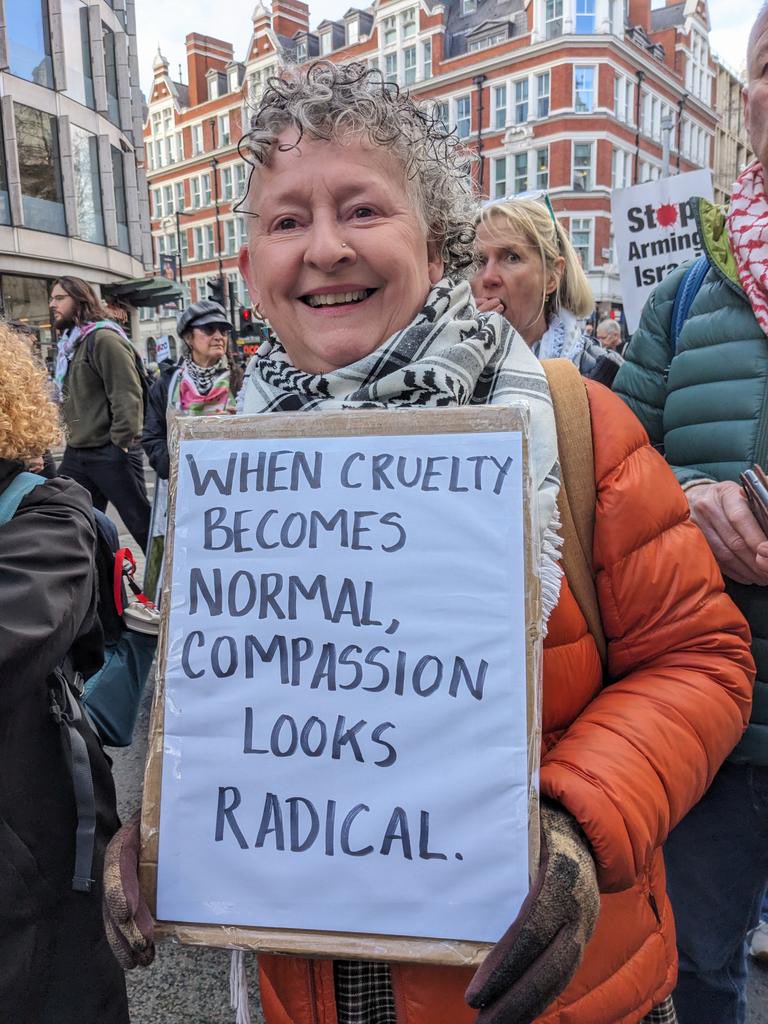 WHEN CRUELTY
BECOMES
NORMAL,
COMPASSION
LOOKS
RADICAL.
Stop
Arming
Israel